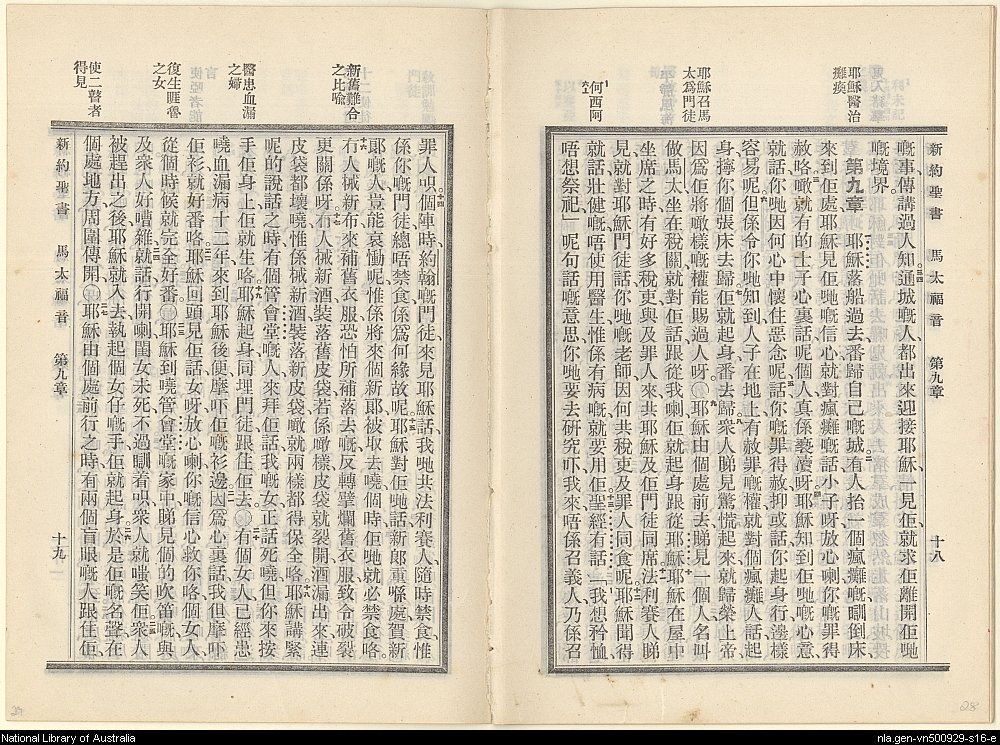 耶穌醫治
癱瘓
耶穌召馬
太爲門徒
何西阿
新約聖書 馬太福音 第九章 十八
嘅事傳講過人知通城嘅人都出來迎接耶穌一見佢就求佢離開佢哋
嘅境界
第九章 耶穌落船過去番歸自己嘅城有人抬一個瘋癱嘅瞓倒床
來到佢處耶穌見佢哋嘅信心就對瘋癱嘅話小子呀放心喇你嘅罪得
赦咯噉就有的士子心裏話呢個人真係褻瀆呀耶穌知到佢哋嘅心意
就話你哋因何心中懷住惡念呢話你嘅罪得赦抑或話你起身行邊樣
容易呢但係令你哋知到人子在地上有赦罪嘅權就對個瘋癱人話起
身擰你個張床去歸佢就起身番去歸衆人睇見驚慌起來就歸榮上帝
因爲佢將噉樣嘅權能賜過人呀耶穌由個處前去睇見一個人名叫
做馬太坐在稅關就對佢話跟從我喇佢就起身跟從耶穌耶穌在屋中
坐席之時有好多稅吏與及罪人來共耶穌及佢門徒同席法利賽人睇
見就對耶穌門徒話你哋嘅老師因何共稅吏及罪人同食呢耶穌聞得
就話壯健嘅唔使用醫生惟係有病嘅就要用佢聖經有話「我想矜恤
唔想祭祀」呢句話嘅意思你哋要去研究吓我來唔係召義人乃係召
新舊難合
之比喩
醫患血漏
之婦
復生睚魯
之女
使二瞽者
得見
罪人唄個陣時約翰嘅門徒來見耶穌話我哋共法利賽人隨時禁食惟
係你嘅門徒總唔禁食係爲何緣故呢耶穌對佢哋話新郎重喺處賀新
郎嘅人豈能哀慟呢惟係將來個新郎被取去嘵個時佢哋就必禁食咯
冇人械新布來補舊衣服恐怕所補落去嘅反轉擘爛舊衣服致令破裂
更關係呀冇人械新酒裝落舊皮袋若係噉樣皮袋就裂開酒漏出來連
皮袋都壞嘵惟係械新酒裝落新皮袋噉就兩樣都得保全咯耶穌講緊
呢的說話之時有個管會堂嘅人來拜佢話我嘅女正話死嘵但你來按
手佢身上佢就生咯耶穌起身同埋門徒跟住佢去有個女人已經患
嘵血漏病十二年來到耶穌後便摩吓佢嘅衫邊因爲心裏話我但摩吓
佢衫就好番咯耶穌回頭見佢話女呀放心喇你嘅信心救你咯個女人
從個時候就完全好番耶穌到嘵管會堂嘅家中睇見個的吹笛嘅與
及衆人好嘈雜就話行開喇閨女未死不過瞓着唄衆人就嗤笑佢衆人
被趕出之後耶穌就入去執起個女仔嘅手佢就起身於是佢嘅名聲在
個處地方周圍傳開耶穌由個處前行之時有兩個盲眼嘅人跟住佢
新約聖書 馬太福音 第九章 十九
National Library of Australia
nla.gen-vn500929-s16-e